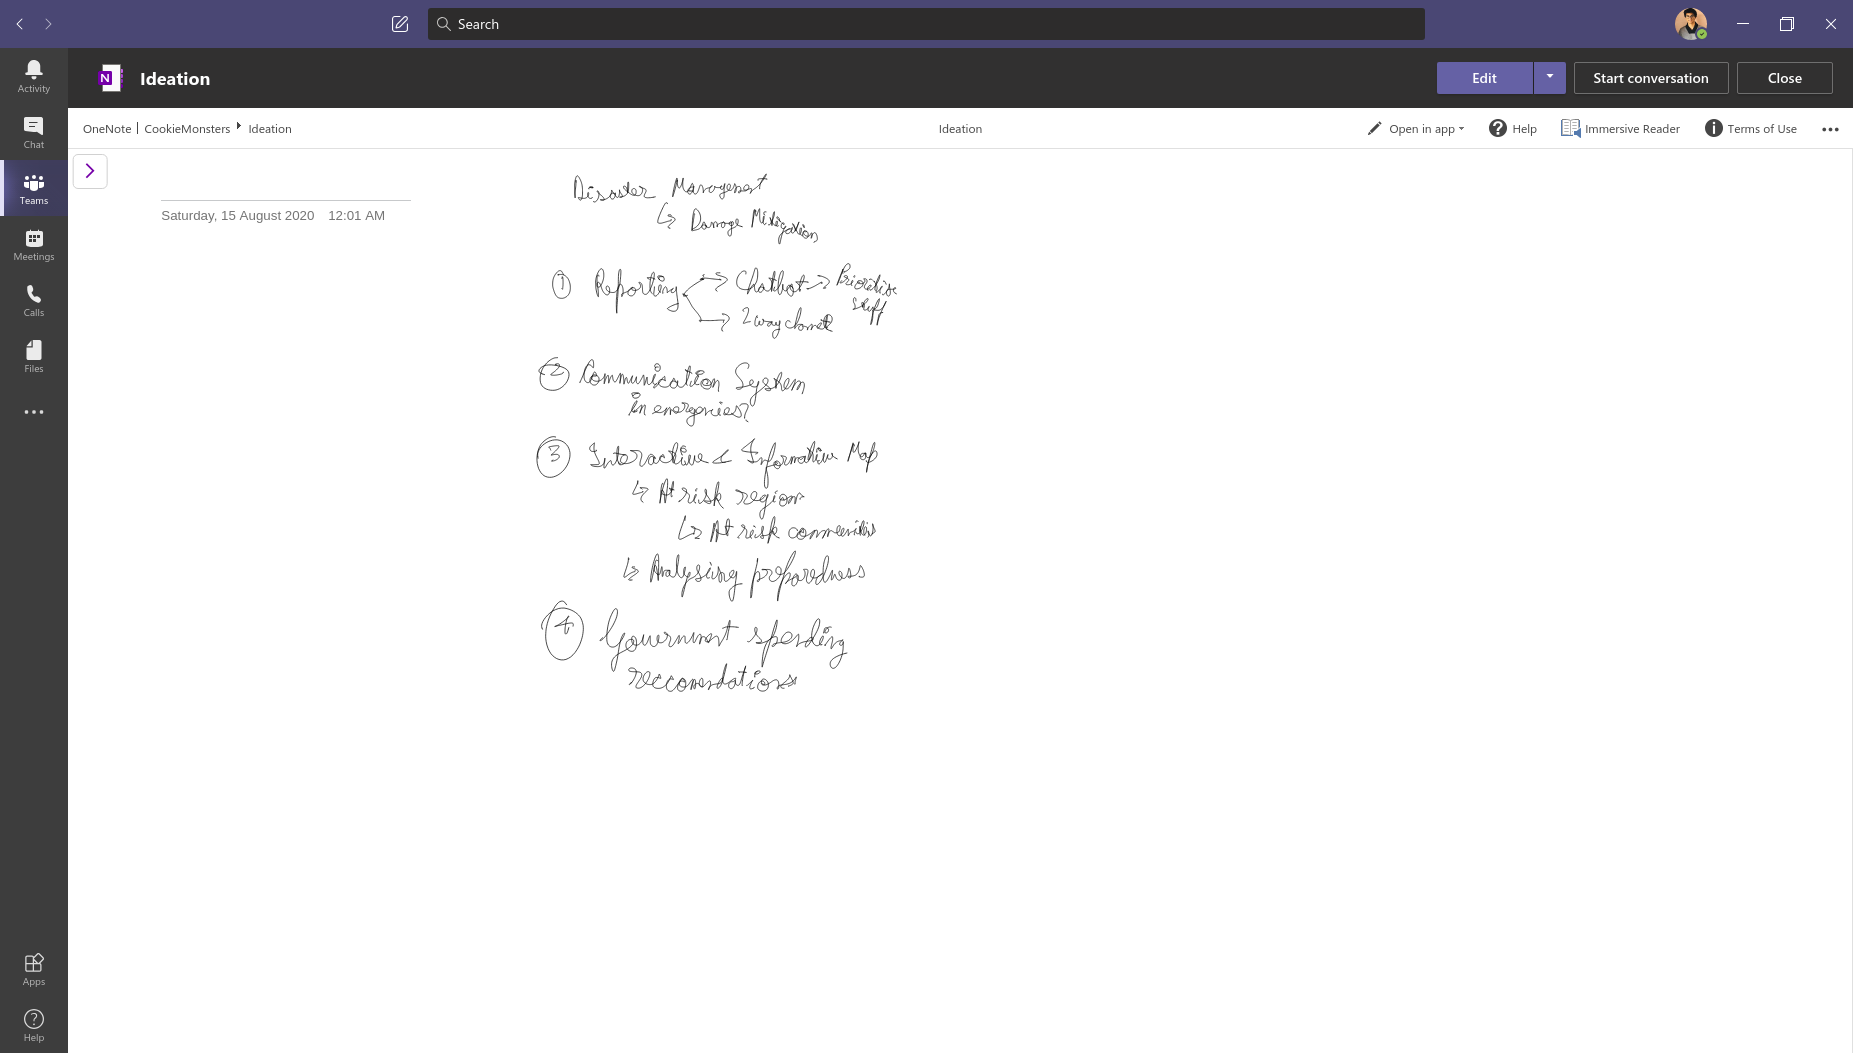 Search
Activity
Chat
Teams
Meetings
Calls
Files
Apps
Help
N Ideation
Edit
Start conversation
Close
OneNote | CookieMonsters Ideation
Ideation
Open in app
Help
Immersive Reader
i Terms of Use
Saturday, 15 August 2020 12:01 AM
Disaster Management
↳ Damage Mitigation
① Reporting → Chatbot → Prioritise
stuff
→ 2 way channel
② Communication System
in emergencies?
③ Interactive & Informative Map
↳ At risk region
↳ At risk communities
↳ Analysing preparedness
④ Government spending
reccomendations